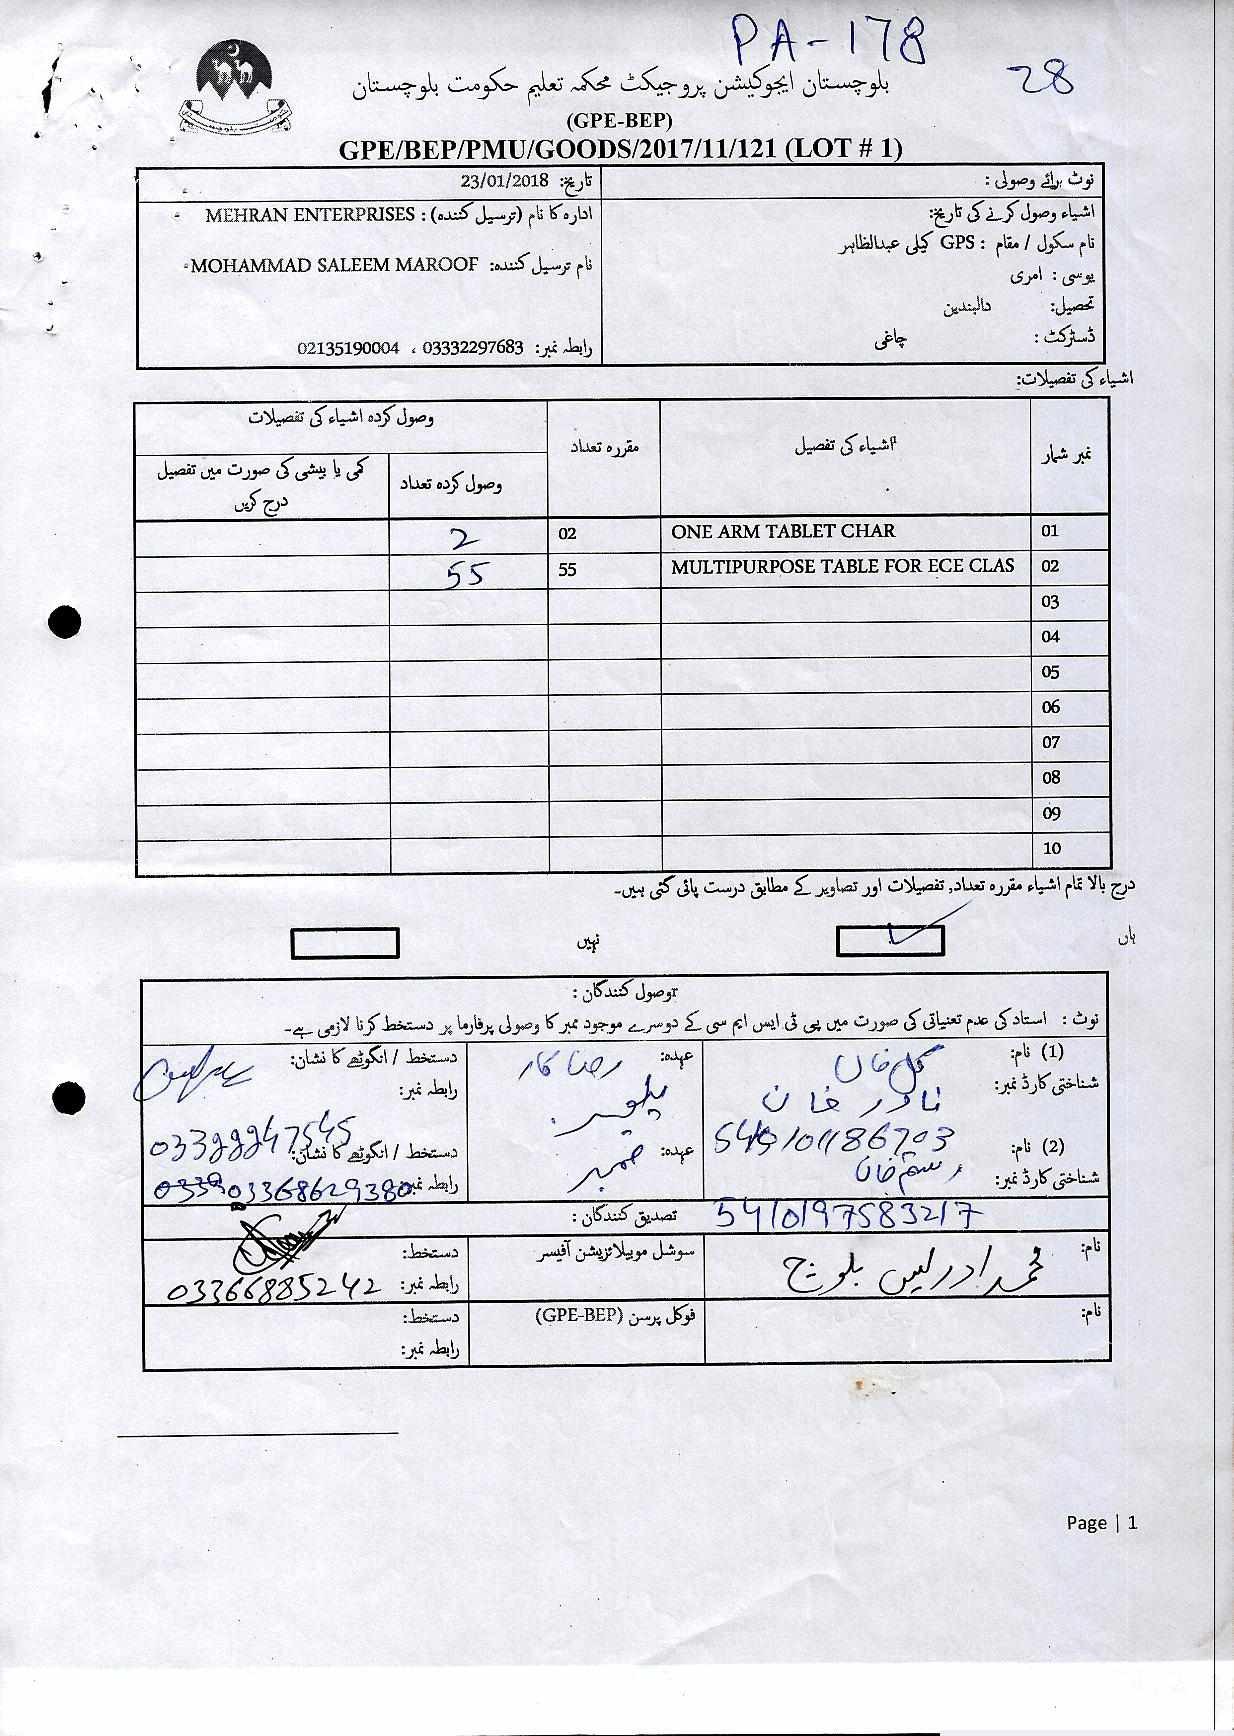 PA-178
28
بلوچستان ایجوکیشن پروجیکٹ محکمہ تعلیم حکومت بلوچستان
(GPE-BEP)
GPE/BEP/PMU/GOODS/2017/11/121 (LOT # 1)
نوٹ برائے وصولی :
تاریخ: 23/01/2018
اشیاء وصول کرنے کی تاریخ:
نام سکول / مقام : GPS کیلی عبدالظاہر
یوسی : امری
تحصیل: دالبندین
ڈسٹرکٹ : چاغی
ادارہ کا نام (ترسیل کنندہ) : MEHRAN ENTERPRISES
نام ترسیل کنندہ: MOHAMMAD SALEEM MAROOF
رابطہ نمبر: 03332297683 ، 02135190004
اشیاء کی تفصیلات:
نمبر شمار اشیاء کی تفصیل مقررہ تعداد وصول کردہ اشیاء کی تفصیلات
وصول کردہ تعداد کمی یا بیشی کی صورت میں تفصیل درج کریں
01 ONE ARM TABLET CHAR 02 2
02 MULTIPURPOSE TABLE FOR ECE CLAS 55 55
03
04
05
06
07
08
09
10
درج بالا تمام اشیاء مقررہ تعداد, تفصیلات اور تصاویر کے مطابق درست پائی گئی ہیں۔
ہاں نہیں
وصول کنندگان :
نوٹ : استاد کی عدم تعیناتی کی صورت میں پی ٹی ایس ایم سی کے دوسرے موجود ممبر کا وصولی پرفارما پر دستخط کرنا لازمی ہے۔
(1) نام: گل خان عہدہ: رضا کار دستخط / انگوٹھے کا نشان:
شناختی کارڈ نمبر: نادر خان رابطہ نمبر:
03322247545
(2) نام: رستم خان عہدہ: ممبر دستخط / انگوٹھے کا نشان:
شناختی کارڈ نمبر: رابطہ نمبر: 03368629380
تصدیق کنندگان : 5410197583217
نام: محمد ادریس بلوچ سوشل موبیلائزیشن آفیسر دستخط:
رابطہ نمبر: 03366885242
نام: فوکل پرسن (GPE-BEP) دستخط:
رابطہ نمبر:
Page | 1